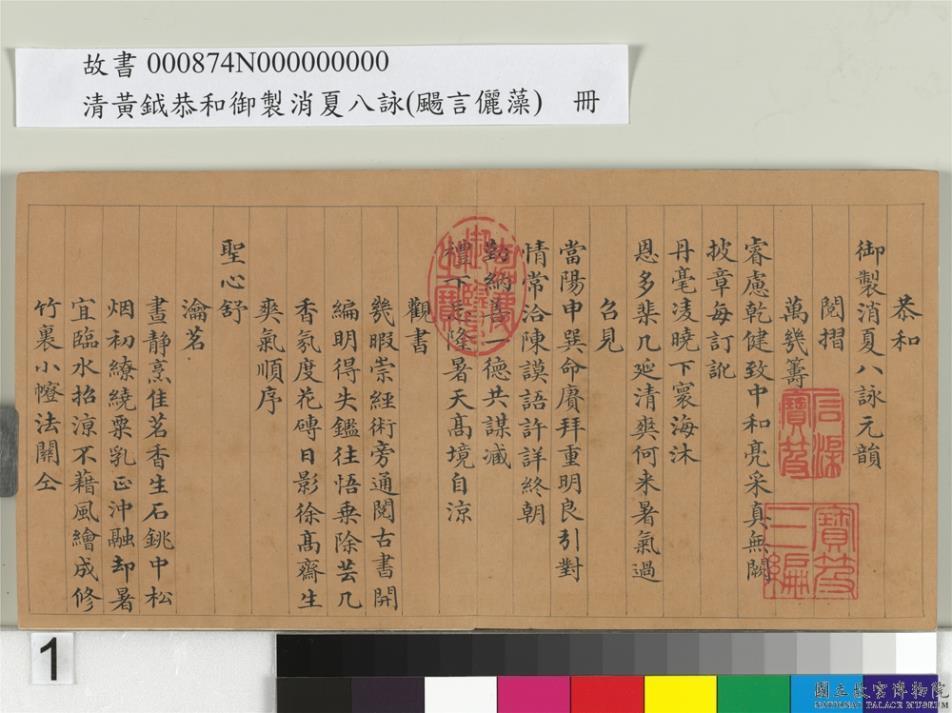 故書 000874N000000000
清黃鉞恭和御製消夏八詠(颺言儷藻) 冊
恭和
御製消夏八詠元韻
閱摺
萬幾籌
睿慮乾健致中和亮采真無闕
披章每訂訛
丹毫凌曉下寰海沐
恩多棐几延清爽何来暑氣過
召見
當陽申巽命賡拜重明良引對
情常洽陳謨語許詳終朝
勤納善一德共謀臧
禮下隆暑天高境自涼
觀書
幾暇崇經術旁通閱古書開
編明得失鑑往悟乗除芸几
香氣度花磚日影徐高齋生
爽氣順序
聖心舒
瀹茗
晝静烹佳茗香生石銚中松
烟初繚繞粟乳正沖融却暑
宜臨水招涼不藉風繪成修
竹裏小幰法關仝
石渠寶笈
寶笈三編
嘉慶御覽之寶
1
國立故宮博物院
NATIONAL PALACE MUSEUM